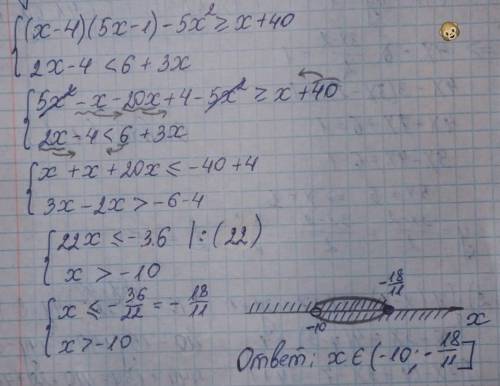 {(x-4)(5x-1)-5x² ≥ x+40
2x-4 < 6+3x
{5x²-x-20x+4-5x² ≥ x+40
2x-4 < 6+3x
{x+x+20x ≤ -40+4
3x-2x > -6-4
{22x ≤ -36 |:(22)
x > -10
{x ≤ -36/22 = -18/11
x > -10
-10 -18/11 x
Ответ: x ∈ (-10; -18/11]